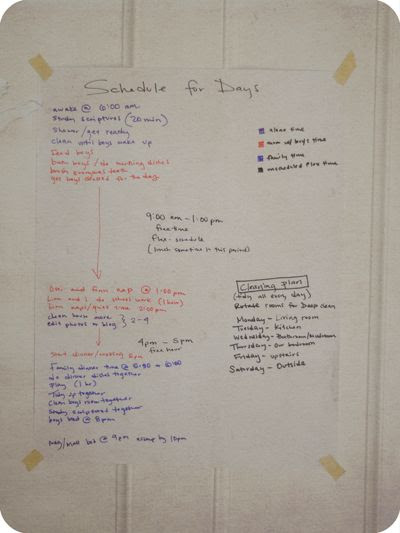 Schedule for Days
awake @ 6:00 am
Study scriptures (20 min)
Shower/get ready
clean until boys wake up
feed boys
bathe boys / do morning dishes
brush everyones teeth
get boys dressed for the day
alone time
mom w/ boys time
family time
unscheduled flex time
9:00 am - 1:00 pm
free time
flex-schedule
(lunch sometime in this period)
and Finn nap @ 1:00 pm
and I do school work (1 hour)
naps/quiet time 2:00 pm
clean house more
edit photos + blog } 2-4
4pm - 5pm
free hour
Start dinner/cooking 5pm
Family dinner time @ 5:30 - 6:00
do dinner dishes together
Play (1 hr)
Tidy up together
Clean boys room together
Study scriptures together
boys bed @ 8pm
bed @ 9pm asleep by 10pm
Cleaning plan
(tidy all every day)
Rotate rooms for Deep clean
Monday - Living room
Tuesday - Kitchen
Wednesday - Bathroom/
Thursday - Our bedroom
Friday - upstairs
Saturday - Outside